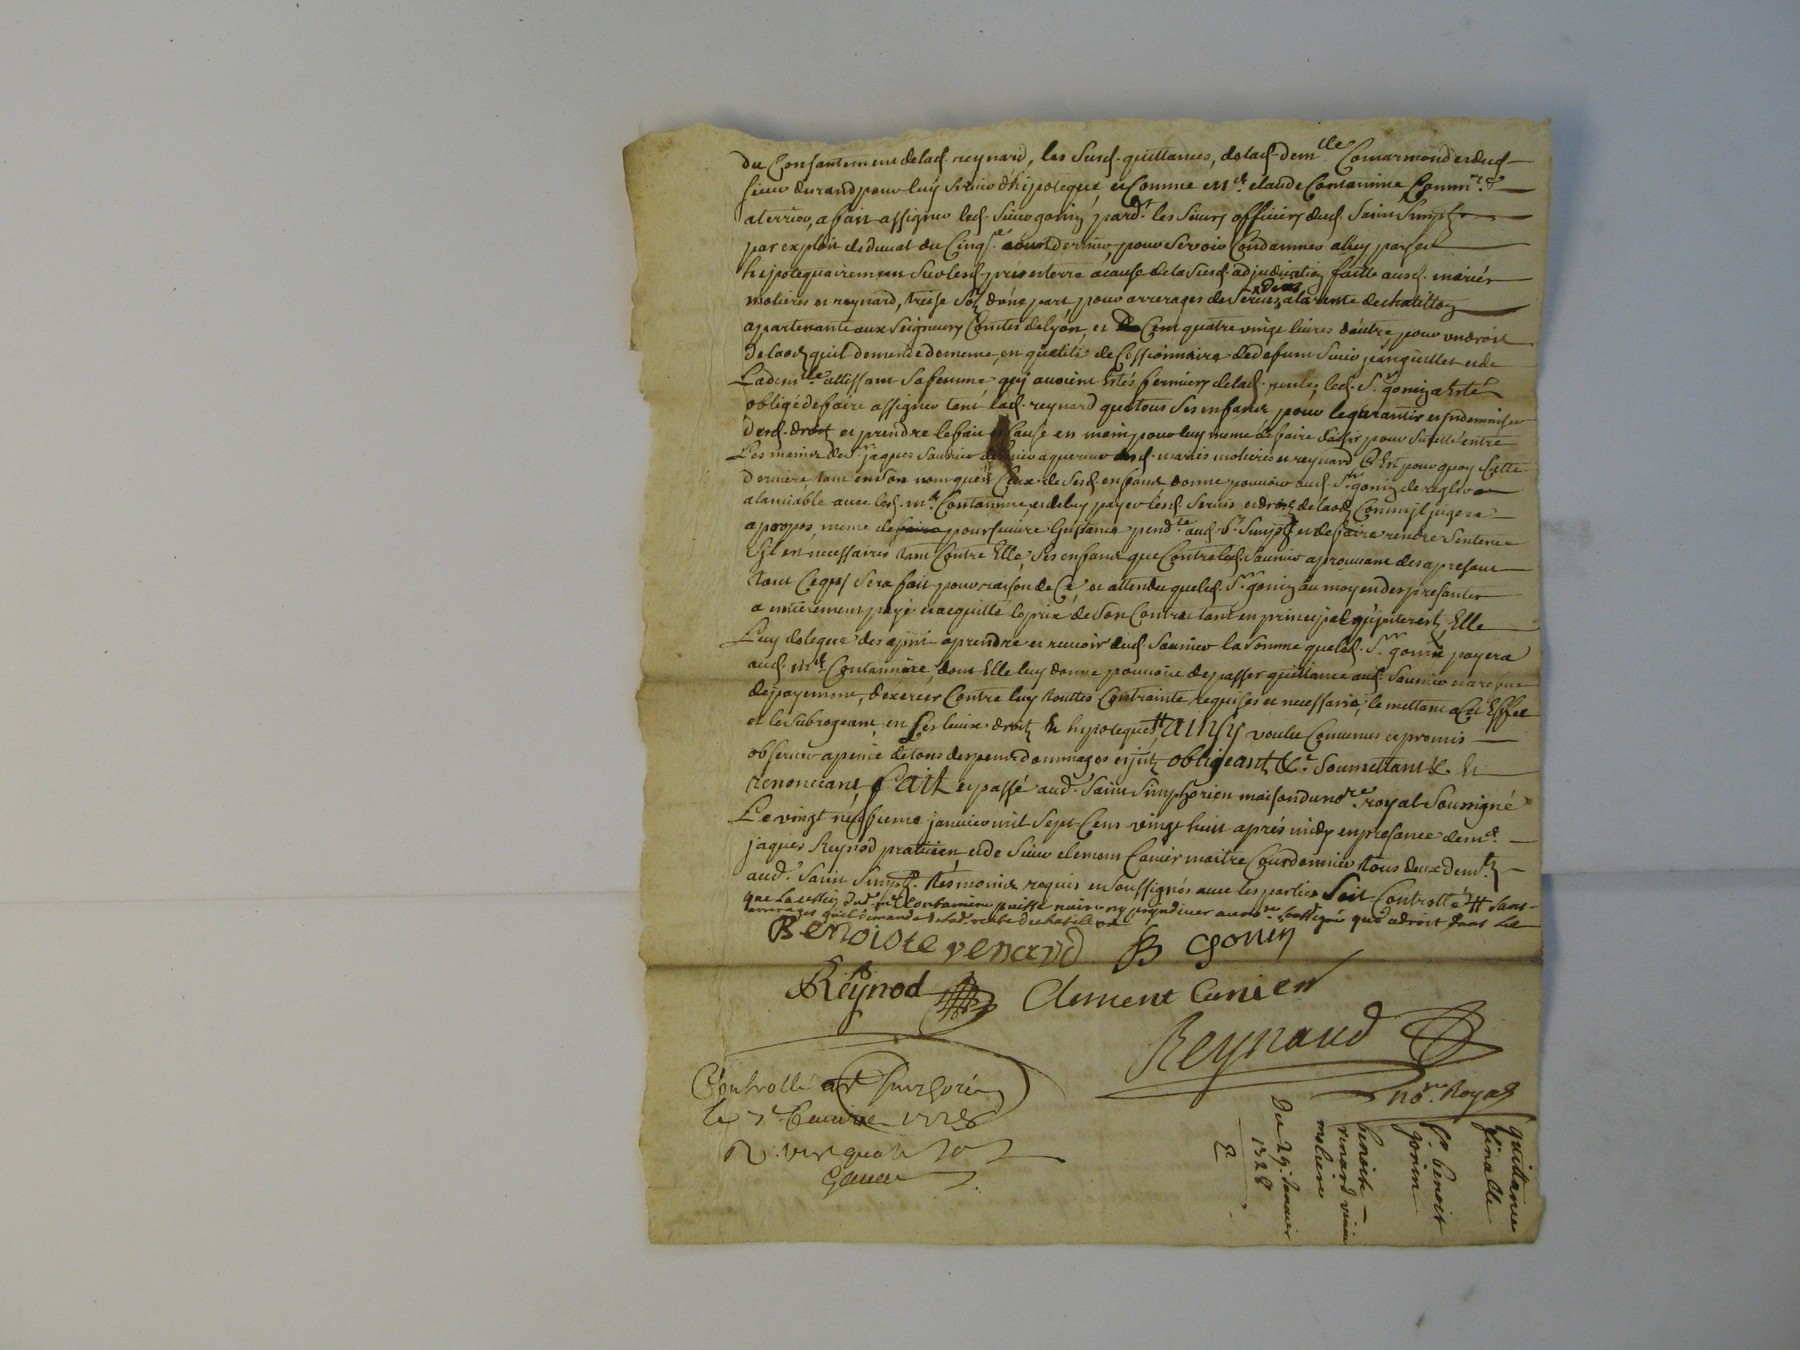 du Consantement de lad. reynard, les susd. quittances, de lad. dem.lle Comarmond et dud.
sieur durand pour luy servir dhipoteque et Comme M.e claude Contamine Comm.re
a terrier, a fait assigner led. sieur gonin, pard.t les sieurs officiers dud. Saint Simph.
par exploit de du Cinq.e dernier pour se voir Condamner a luy payer
hipotequairement sur lesd. prés et terre a cause de la susd. adjudication faitte ausd. mariés
molieres et reynard, treise sols d'une part, pour arrerages de servis deus a la rente de chatillon
apartenante aux Seigneurs Comtes de lyon, et Cent quatre vingt livres d'autre, pour un droit
de laods quil demende de meme, en qualité de Cessionnaire de defunt sieur jean guillet et de
Lade.lle sa femme qui avoient estés fermiers de lad. rente, led. S.r gonin a esté
obligé de faire assigner tant lad. reynard que tous ses enfans pour le garantir et indemniser
desd. droits et prendre le fait et Cause en main pour luy meme de faire pour
Les mains de S.r jaques Saunier aquereur desd. mariés molieres et reynard, C'est pour quoy Cette
derniere tant en son nom qu'en Ceux de sesd. enfans donne pouvoir aud. S.r gonin de regler
a lamiable avec led. m.e Contamine, et de luy payer lesd. servis et droits de laods Comme il jugera
apropos, meme de faire poursuivre linstance pend.te aud. S.t Simph. et de faire rendre Sentence
Sil est necessaires tant Contre Elle, ses enfans que Contre led. Saunier aprouvant des apresant
tout Ce qui sera fait pour raison de Ce, et attendu que led. S.r gonin au moyen des presantes
a entierement payé et acquitté le prix de son Contrat tant en principal qu'interests, Elle
Luy delegue des apresent aprendre et recevoir dud. Saunier la somme que led. S.r gonin payera
aud. m.e Contamine, dont Elle luy donne pouvoir de passer quittance aud. Saunier et a refus
de payement, d'exercer Contre luy touttes Contrainte requises et necessaires, le mettant a Cet Effet
et le subrogeant en ses lieux droits & hipoteques, # ainsy voulu Convenus et promis
observer a peine de tous despens dommages interets obligeants &c. Soumettans &c. &
renonceans, Fait et passé aud. Saint Simphorien maison du no.re royal Soussigné
Le vingt neufvieme janvier mil sept Cens vingt huit après midy en presance de m.e
jaques Reynod praticien et de sieur clement Canier maitre Courdonnier tous deux dem.ts
aud. Saint Simph. tesmoins requis et soussignés avec les parties Soit Controllé # sans
que La cession dud. m.e Contamine puisse nuire ny prejudicier au no.re soussigné qui a droit dans les
arrerages quil demande de lad. rente de chatillon
Benoiste venard B Gonin
Reynod Clement Canier
Reynaud
no.re Royal
Controllé a S.t Simphorien
le 7.e 1728
R. sols
quittance
finalle
S.r benoit
gonin
benoite
venard veuve
moliere
Du 29. Janvier
1728